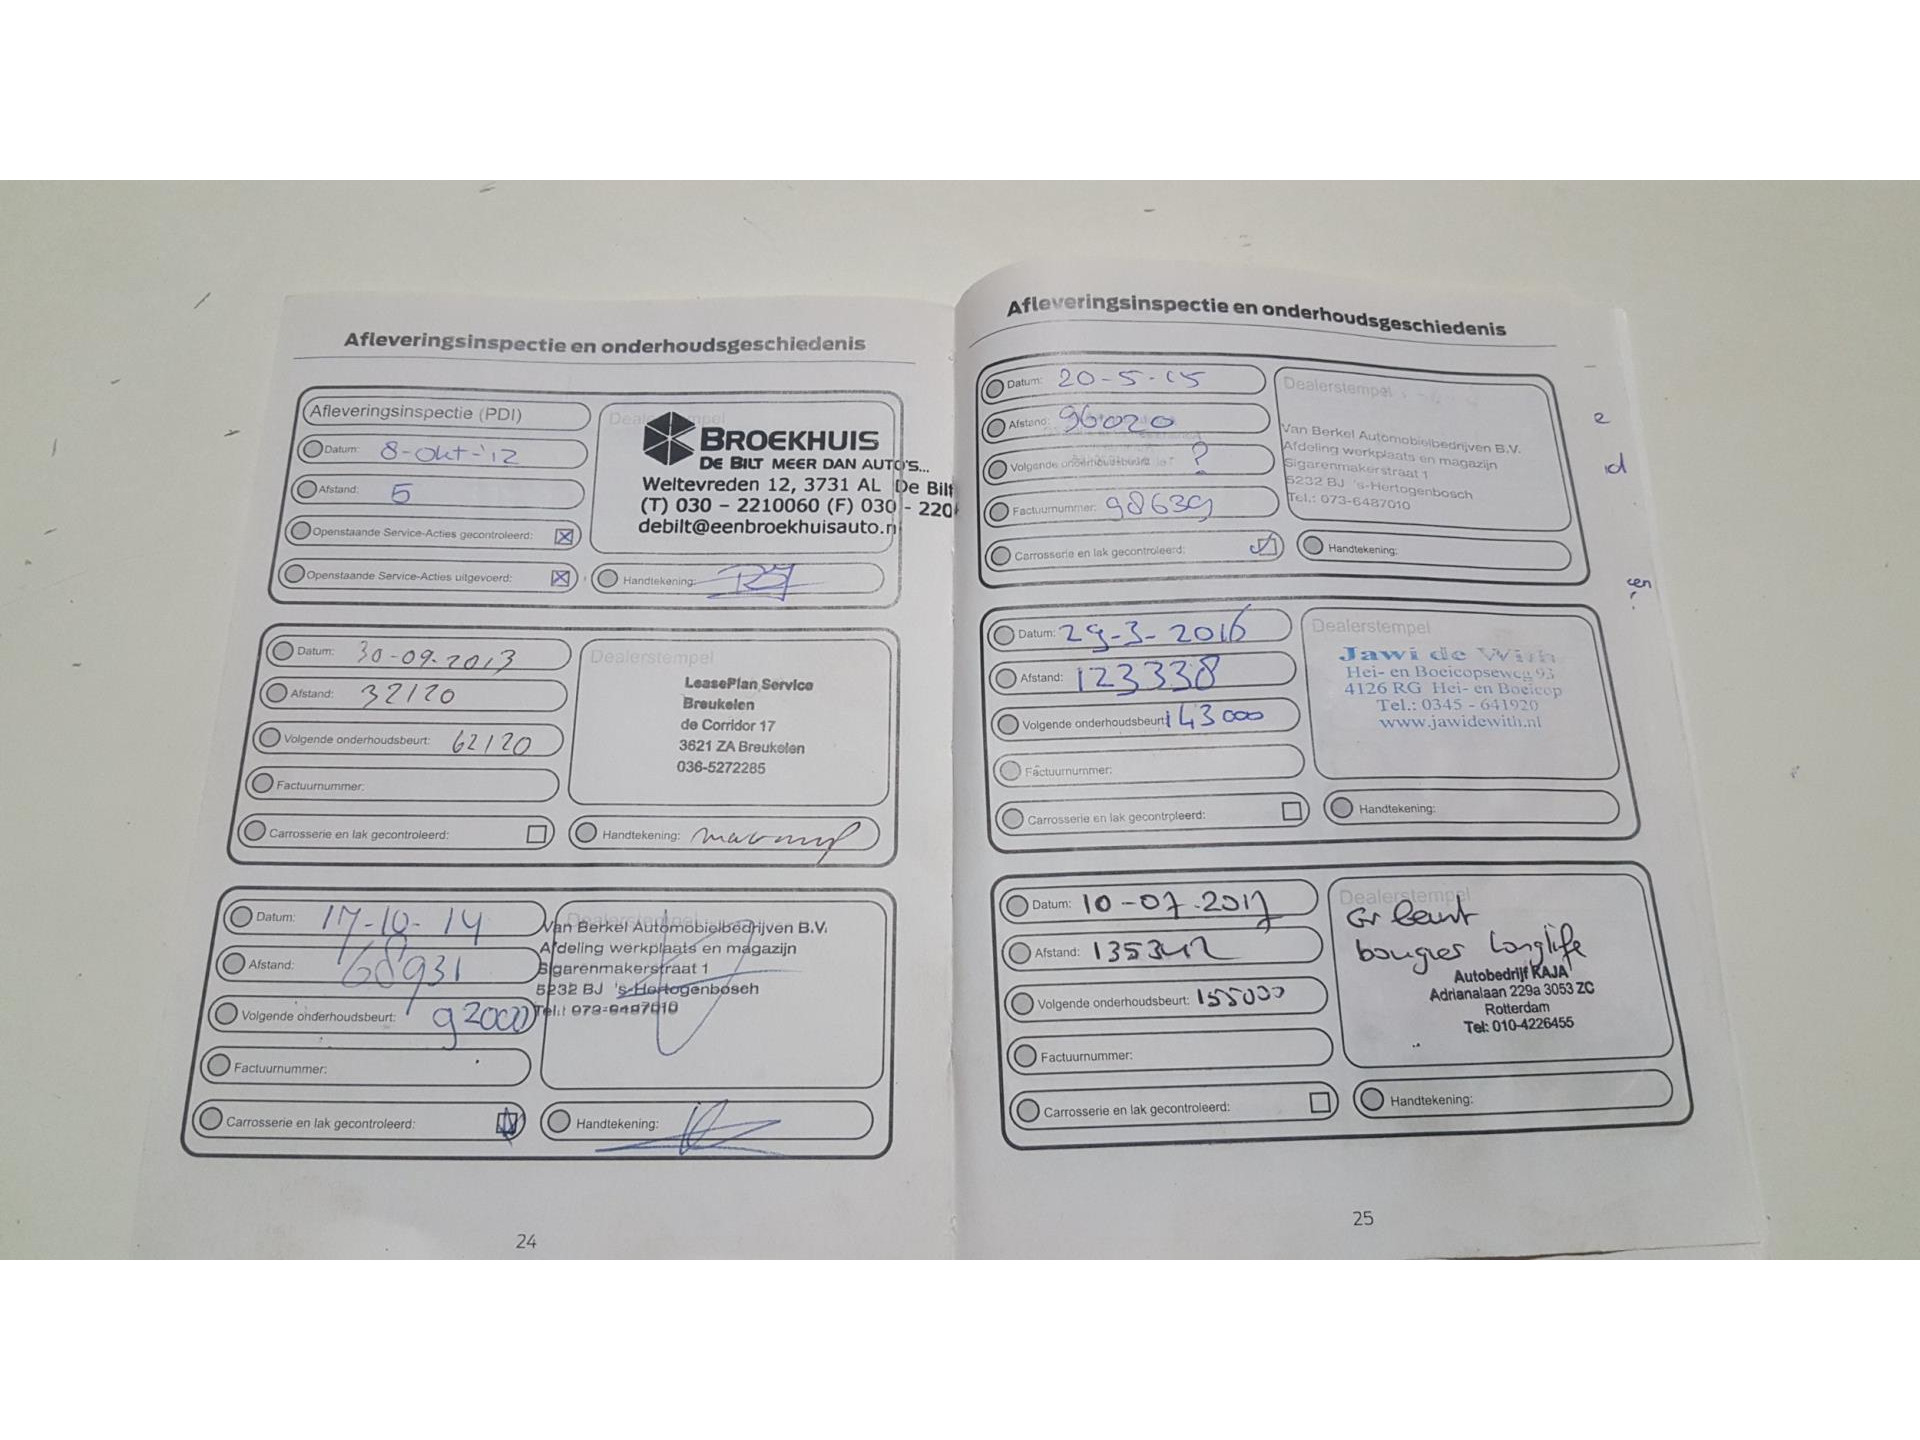 Afleveringsinspectie en onderhoudsgeschiedenis
Afleveringsinspectie (PDI)
Datum: 8-Okt-'12
Afstand: 5
Openstaande Service-Acties gecontroleerd:
Openstaande Service-Acties uitgevoerd:
Dealerstempel
BROEKHUIS
DE BILT MEER DAN AUTO'S...
Weltevreden 12, 3731 AL De Bilt
(T) 030 – 2210060 (F) 030 - 220
debilt@eenbroekhuisauto.nl
Handtekening:
Datum: 30-09-2013
Afstand: 32120
Volgende onderhoudsbeurt: 62120
Factuurnummer:
Carrosserie en lak gecontroleerd:
Dealerstempel
LeasePlan Service
Breukelen
de Corridor 17
3621 ZA Breukelen
036-5272285
Handtekening:
Datum: 17-10-14
Afstand: 68931
Volgende onderhoudsbeurt: 92000
Factuurnummer:
Carrosserie en lak gecontroleerd:
Dealerstempel
Van Berkel Automobielbedrijven B.V.
Afdeling werkplaats en magazijn
Sigarenmakerstraat 1
5232 BJ 's-Hertogenbosch
Tel.: 073-6487010
Handtekening:
24
Afleveringsinspectie en onderhoudsgeschiedenis
Datum: 20-5-15
Afstand: 96020
Volgende onderhoudsbeurt: ?
Factuurnummer: 98639
Carrosserie en lak gecontroleerd:
Dealerstempel
Van Berkel Automobielbedrijven B.V.
Afdeling werkplaats en magazijn
Sigarenmakerstraat 1
5232 BJ 's-Hertogenbosch
Tel.: 073-6487010
Handtekening:
Datum: 29-3-2016
Afstand: 123338
Volgende onderhoudsbeurt: 143000
Factuurnummer:
Carrosserie en lak gecontroleerd:
Dealerstempel
Jawi de With
Hei- en Boeicopseweg 93
4126 RG Hei- en Boeicop
Tel.: 0345 - 641920
www.jawidewith.nl
Handtekening:
Datum: 10-07-2017
Afstand: 135342
Volgende onderhoudsbeurt: 155000
Factuurnummer:
Carrosserie en lak gecontroleerd:
Dealerstempel
Gr beurt
bougies Longlife
Autobedrijf KAJA
Adrianalaan 229a 3053 ZC
Rotterdam
Tel: 010-4226455
Handtekening:
25
e
d
en